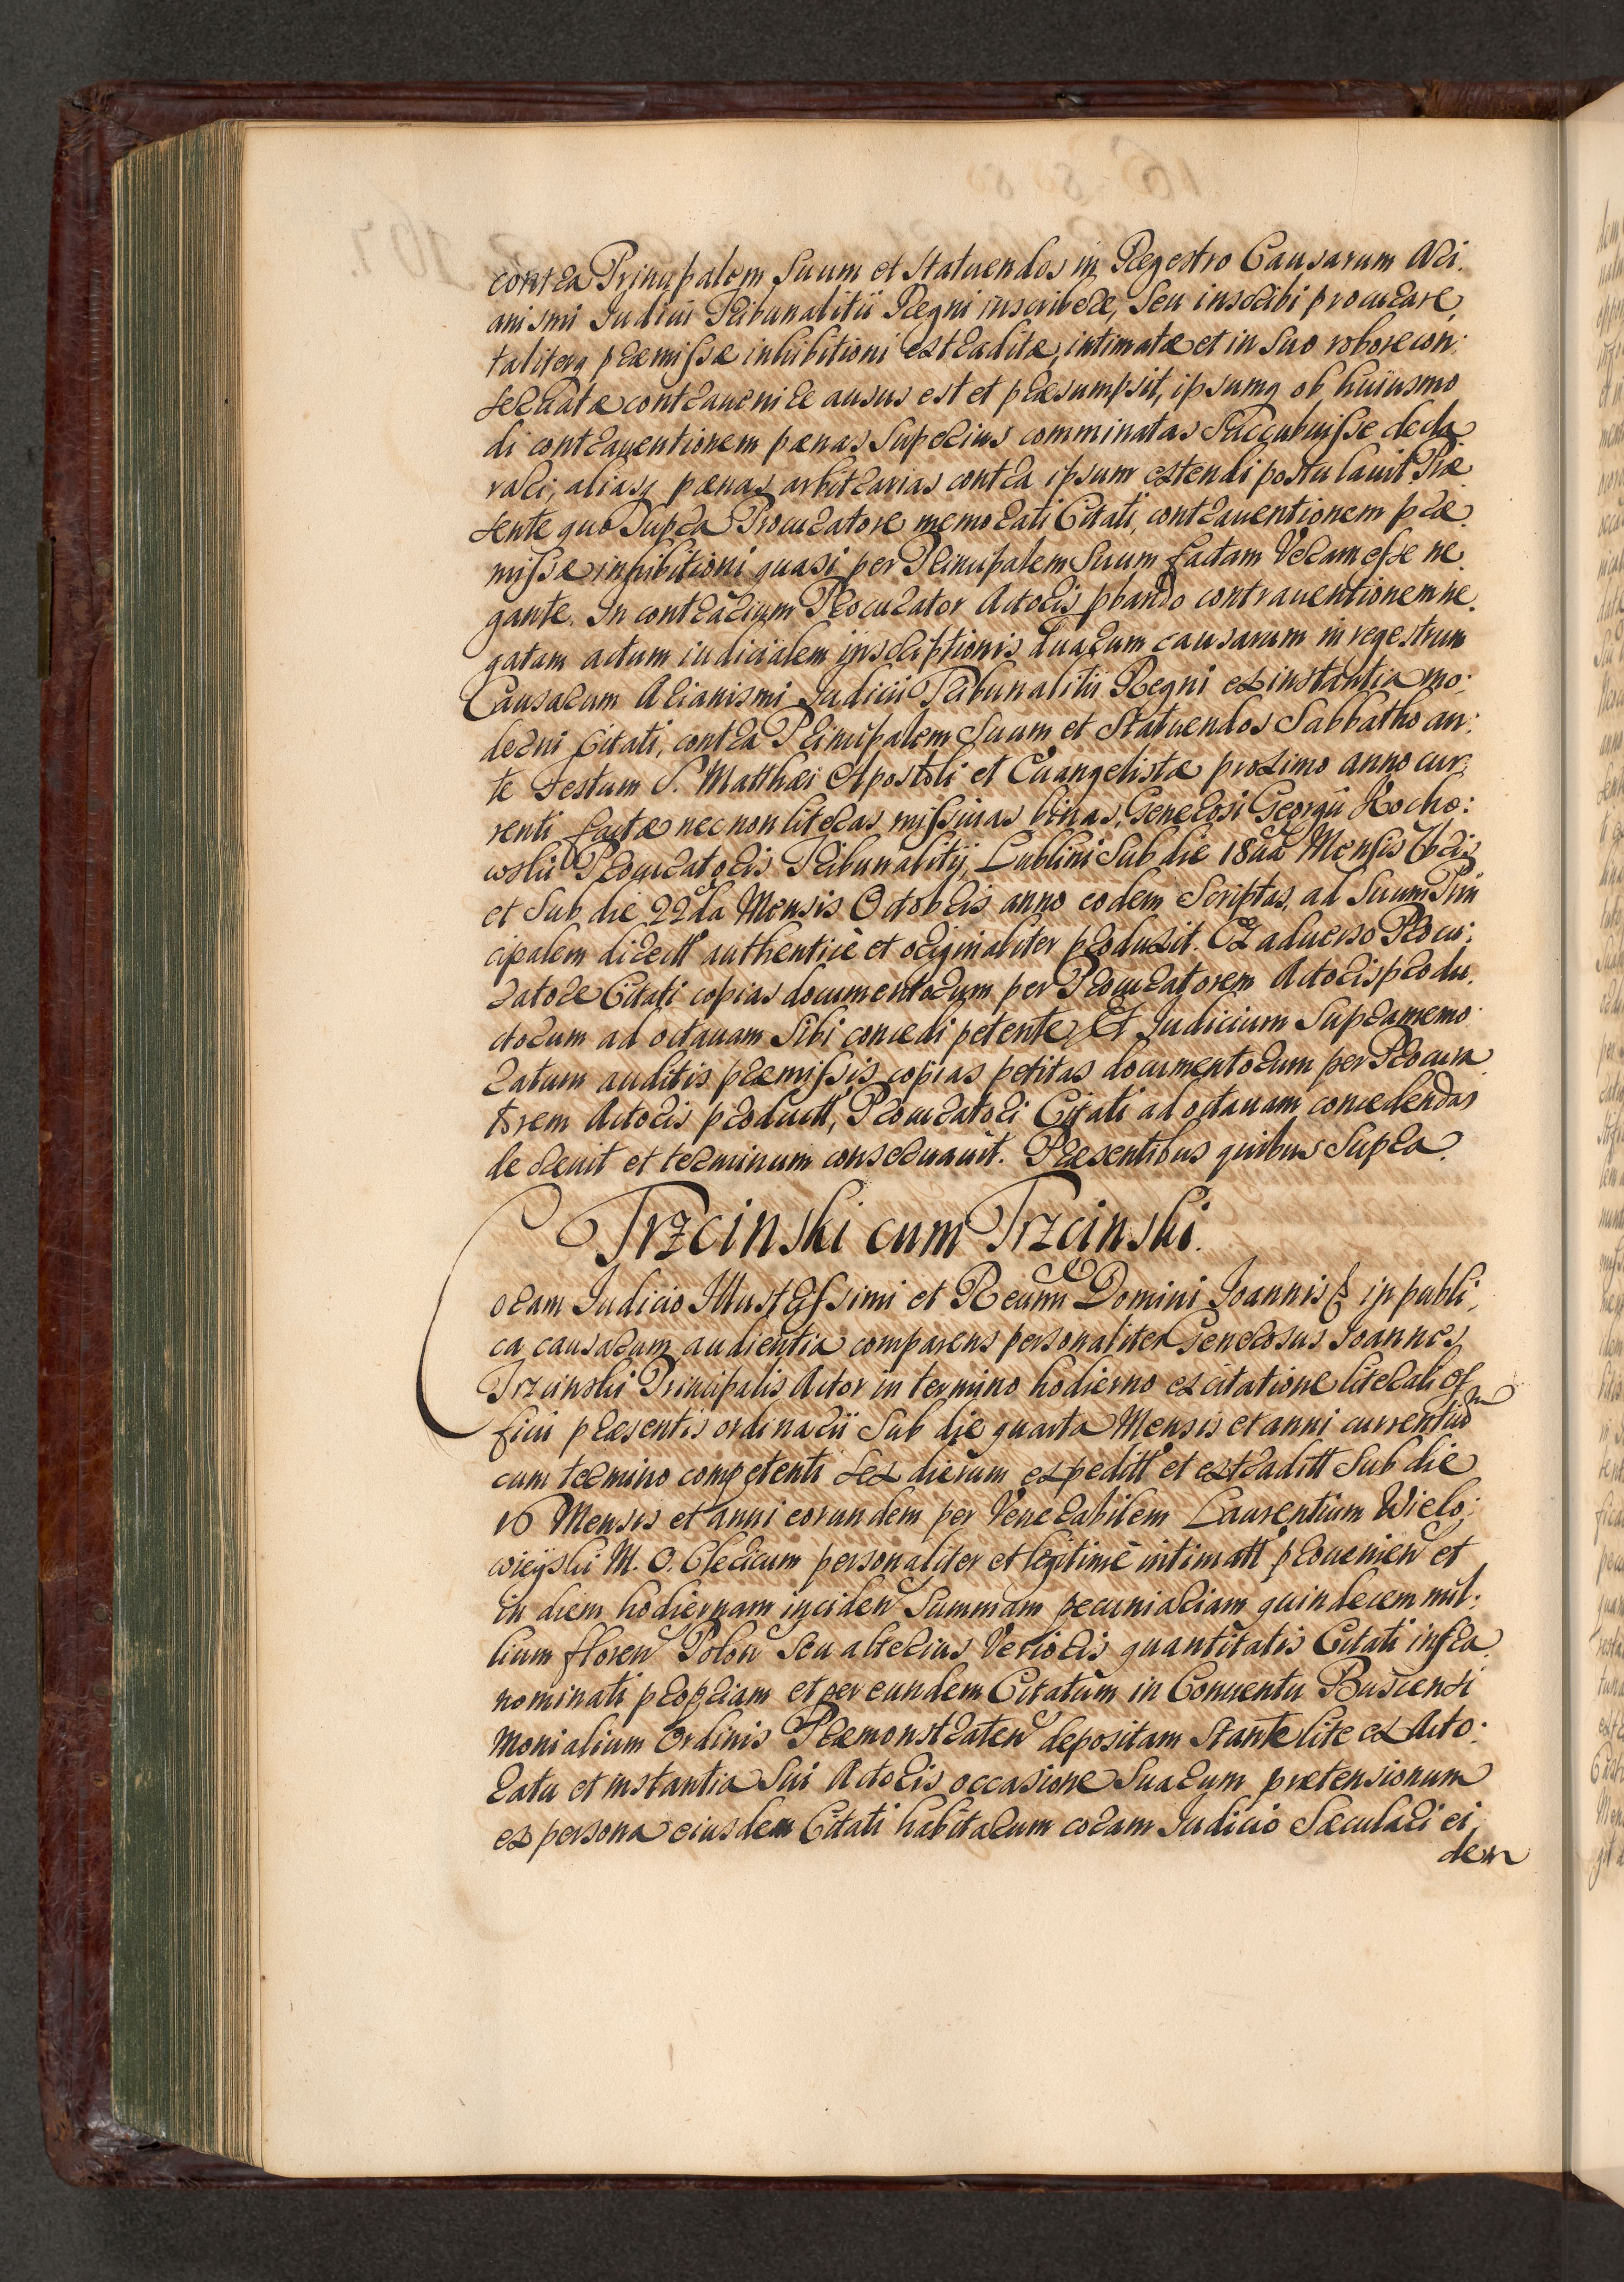 contra Principalem suum et statuendos in Regestro Causarum Ari:
anismi Iudicii Tribunalitii Regni inscribere, seu inscribi procurare,
taliterq præmissæ inhibitioni extraditæ, intimatæ et in suo robore con:
servatæ contravenire ausus est et præsumpsit, ipsumq ob huiusmo
di contraventionem pœnas superius comminatas succubuisse decla
rari, aliasq pœnas arbitrarias contra ipsum extendi postulavit Præ
sente quo supra Procuratore memorati Citati, contraventionem præ
missæ inhibitioni quasi per Principalem suum factam veram esse ne
gante. In contrarium Procurator Actoris pbando contraventionem ne
gatam actum iudicialem inscriptionis duarum causarum in regestrum
Causarum Arianismi Iudicii Tribunalitii Regni ex instantia mo:
derni Citati, contra Principalem suum et statuendos Sabbatho an:
te Festum S. Matthæi Apostoli et Euangelistæ proximo anno cur
renti factæ nec non literas missivas binas, Generosi Georgij Kocho:
wski Procuratoris Tribunalitij, Lublini sub die 18va Mensis 7bris
et sub die 22da Mensis Octobris anno eodem scriptas, ad suum Prin
cipalem directt authenticè et originaliter produxit. Ex adverso Procu:
ratore Citati copias documentorum per Procuratorem Actoris produ
ctorum ad octavam sibi concedi petente, Et Iudicium supramemo
ratum auditis præmissis copias petitas documentorum per Procura
torem Actoris productt, Procuratori Citati ad octavam concedendas
decrevit et terminum conservavit. Præsentibus quibus supra.
Trzcinski cum Trzcinski.
Coram Iudicio Illustrissimi et Reverm Domini Ioannis in publi
ca causarum audientia comparens personaliter Generosus Ioannes
Trzcinski Principalis Actor in termino hodierno ex citatione literali of
ficii præsentis ordinarii sub die quarta Mensis et anni currentium
cum termino competenti sex dierum expeditt et extraditt sub die
16 Mensis et anni eorundem per Venerabilem Laurentium Wielo:
wieyski M. O. Clericum personaliter et legitimè intimatt provenien et
in diem hodiernam inciden summam pecuniariam quindecem mil:
lium floren Polon seu alterius verioris quantitatis Citati infra
nominati propriam et per eundem Citatum in Conventu Buscensi
Monialium Ordinis Præmonstraten depositam stante lite ex Acto:
ratu et instantia sui Actoris occasione suarum prætensionum
ex persona eiusdem Citati habitarum coram Iudicio Sæculari ei
dem